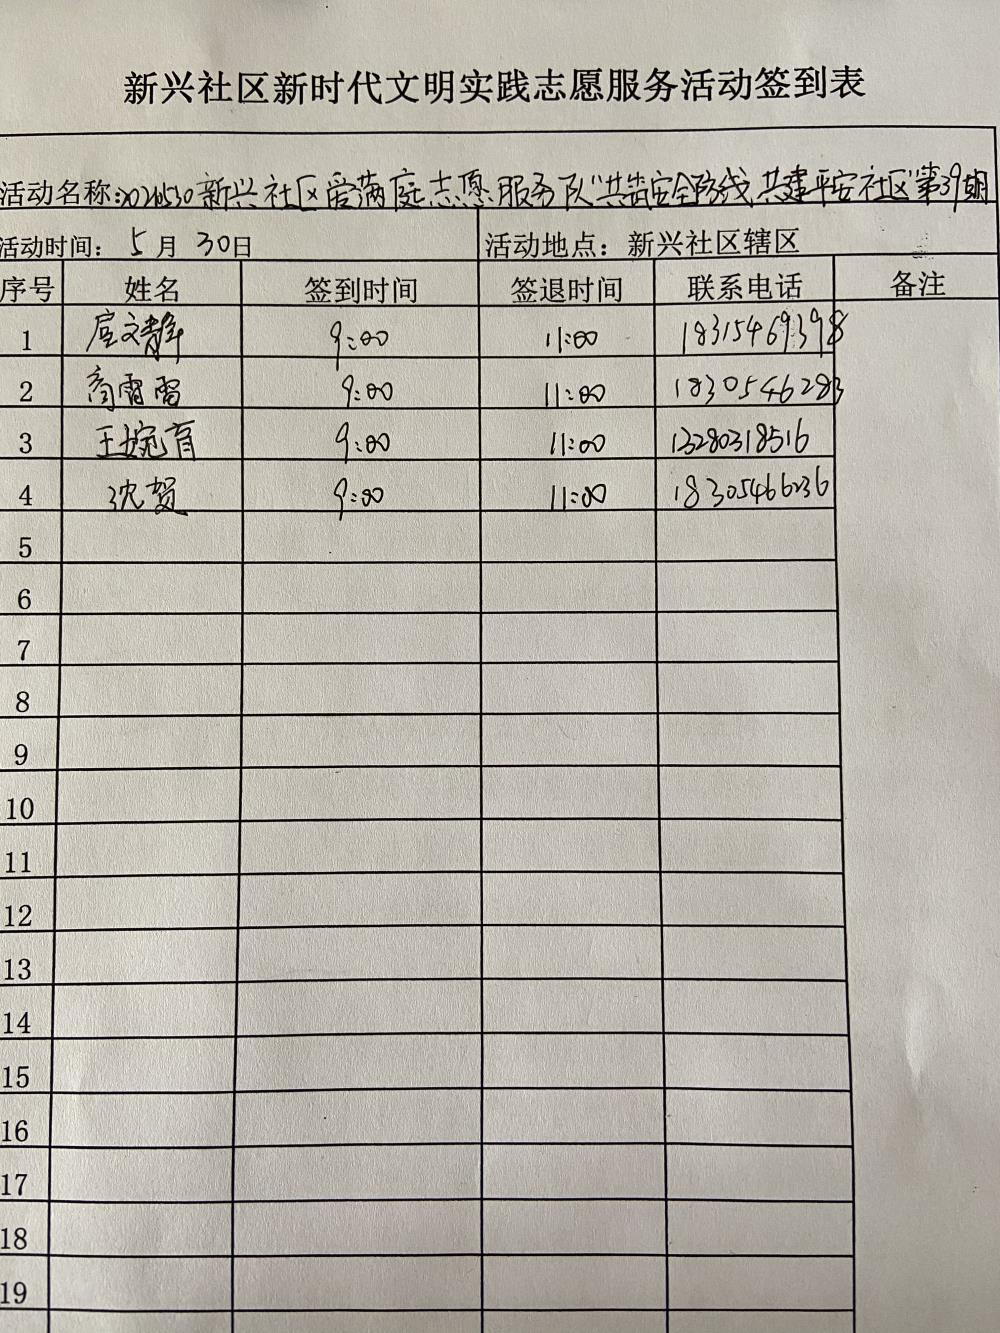 新兴社区新时代文明实践志愿服务活动签到表
活动名称:20240530新兴社区爱满庭志愿服务队"共筑安全防线 共建平安社区"第39期
活动时间: 5月 30日 活动地点: 新兴社区辖区
序号 姓名 签到时间 签退时间 联系电话 备注
1 文静 9:00 11:00 18315469398
2 高雷雷 9:00 11:00 1830546283
3 王婉育 9:00 11:00 13280318516
4 沈贺 9:00 11:00 18305466236
5
6
7
8
9
10
11
12
13
14
15
16
17
18
19